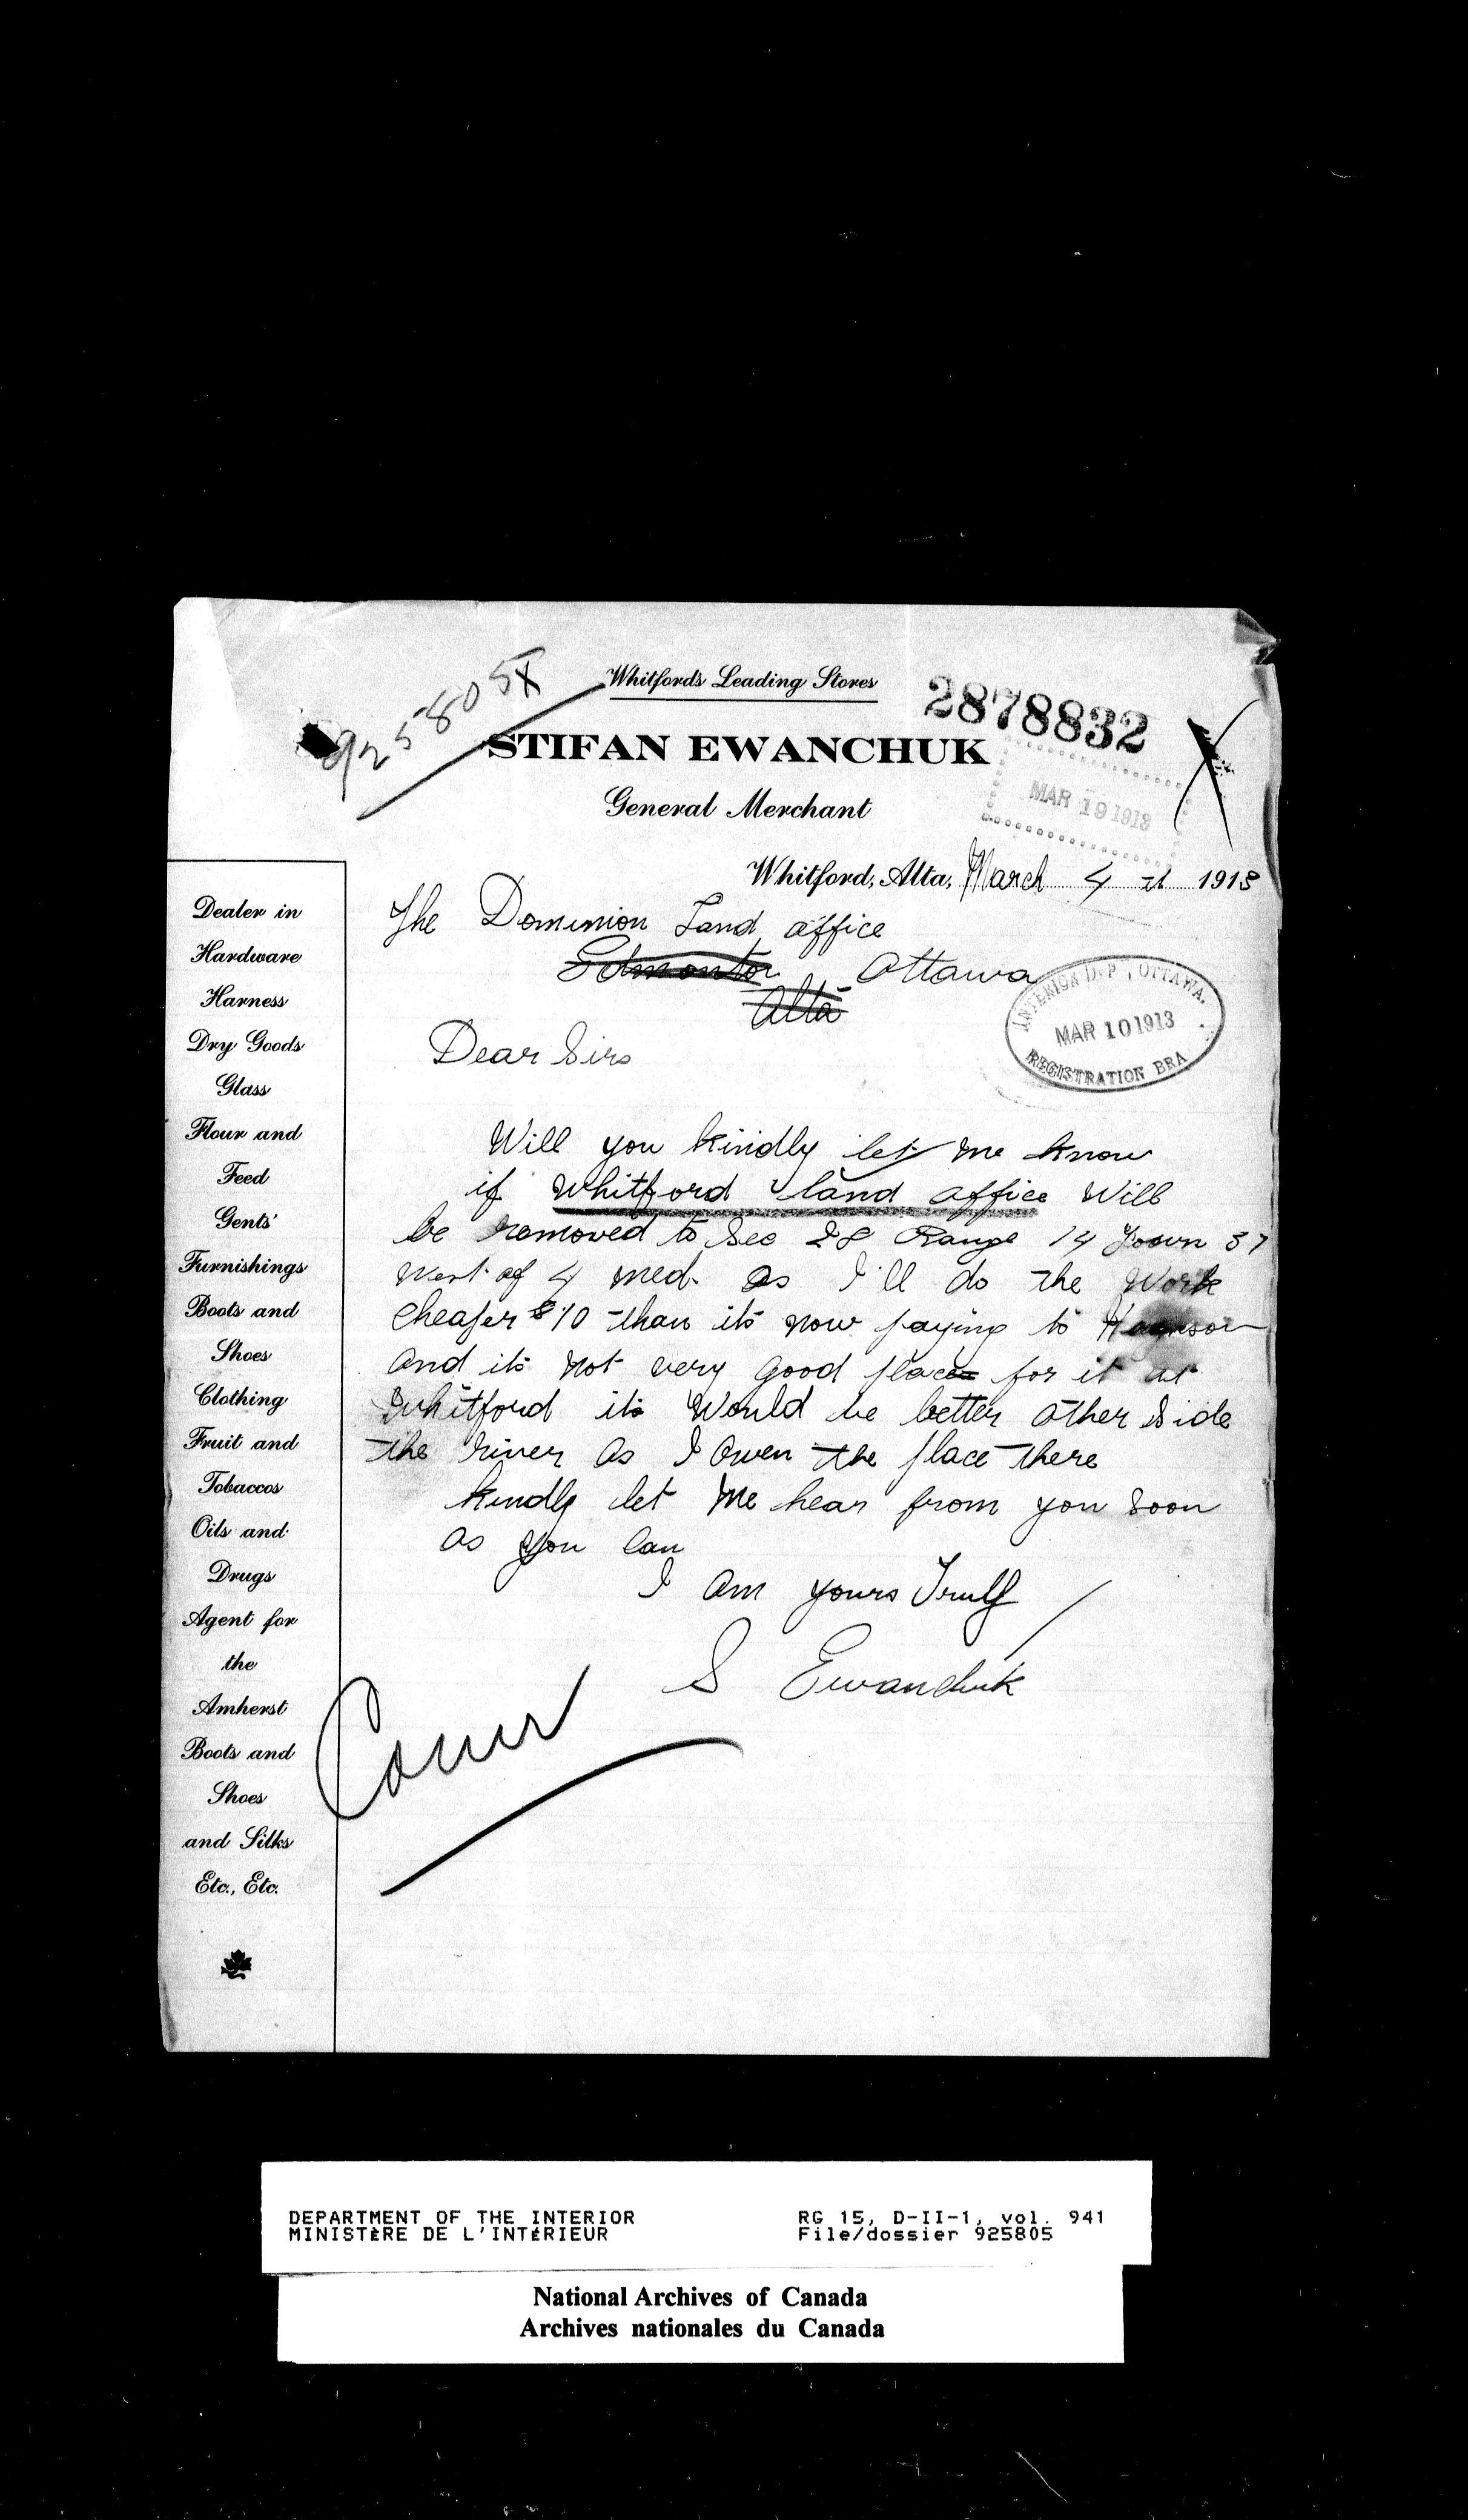 925805X
Whitford's Leading Stores
2878832
STIFAN EWANCHUK
General Merchant
MAR 19 1913
Whitford, Alta, March 4 1913
The Dominion Land office
Edmonton Ottawa
Alta
INTERIOR DEP, OTTAWA.
MAR 10 1913
REGISTRATION BRA
Dear Sirs
Will you kindly let me know
if Whitford land office Will
be removed to Sec 28 Range 14 Town 57
West of 4 med. as I'll do the Work
Cheaper $10 than its now paying to
and its not very good place for it at
Whitford its Would be better other Side
the river as I owen the place there
kindly let Me hear from you Soon
as you Can
I am yours Truly
S Ewanchuk
Dealer in
Hardware
Harness
Dry Goods
Glass
Flour and
Feed
Gents'
Furnishings
Boots and
Shoes
Clothing
Fruit and
Tobaccos
Oils and
Drugs
Agent for
the
Amherst
Boots and
Shoes
and Silks
Etc., Etc.
DEPARTMENT OF THE INTERIOR
MINISTÈRE DE L'INTÉRIEUR
RG 15, D-II-1, vol. 941
File/dossier 925805
National Archives of Canada
Archives nationales du Canada